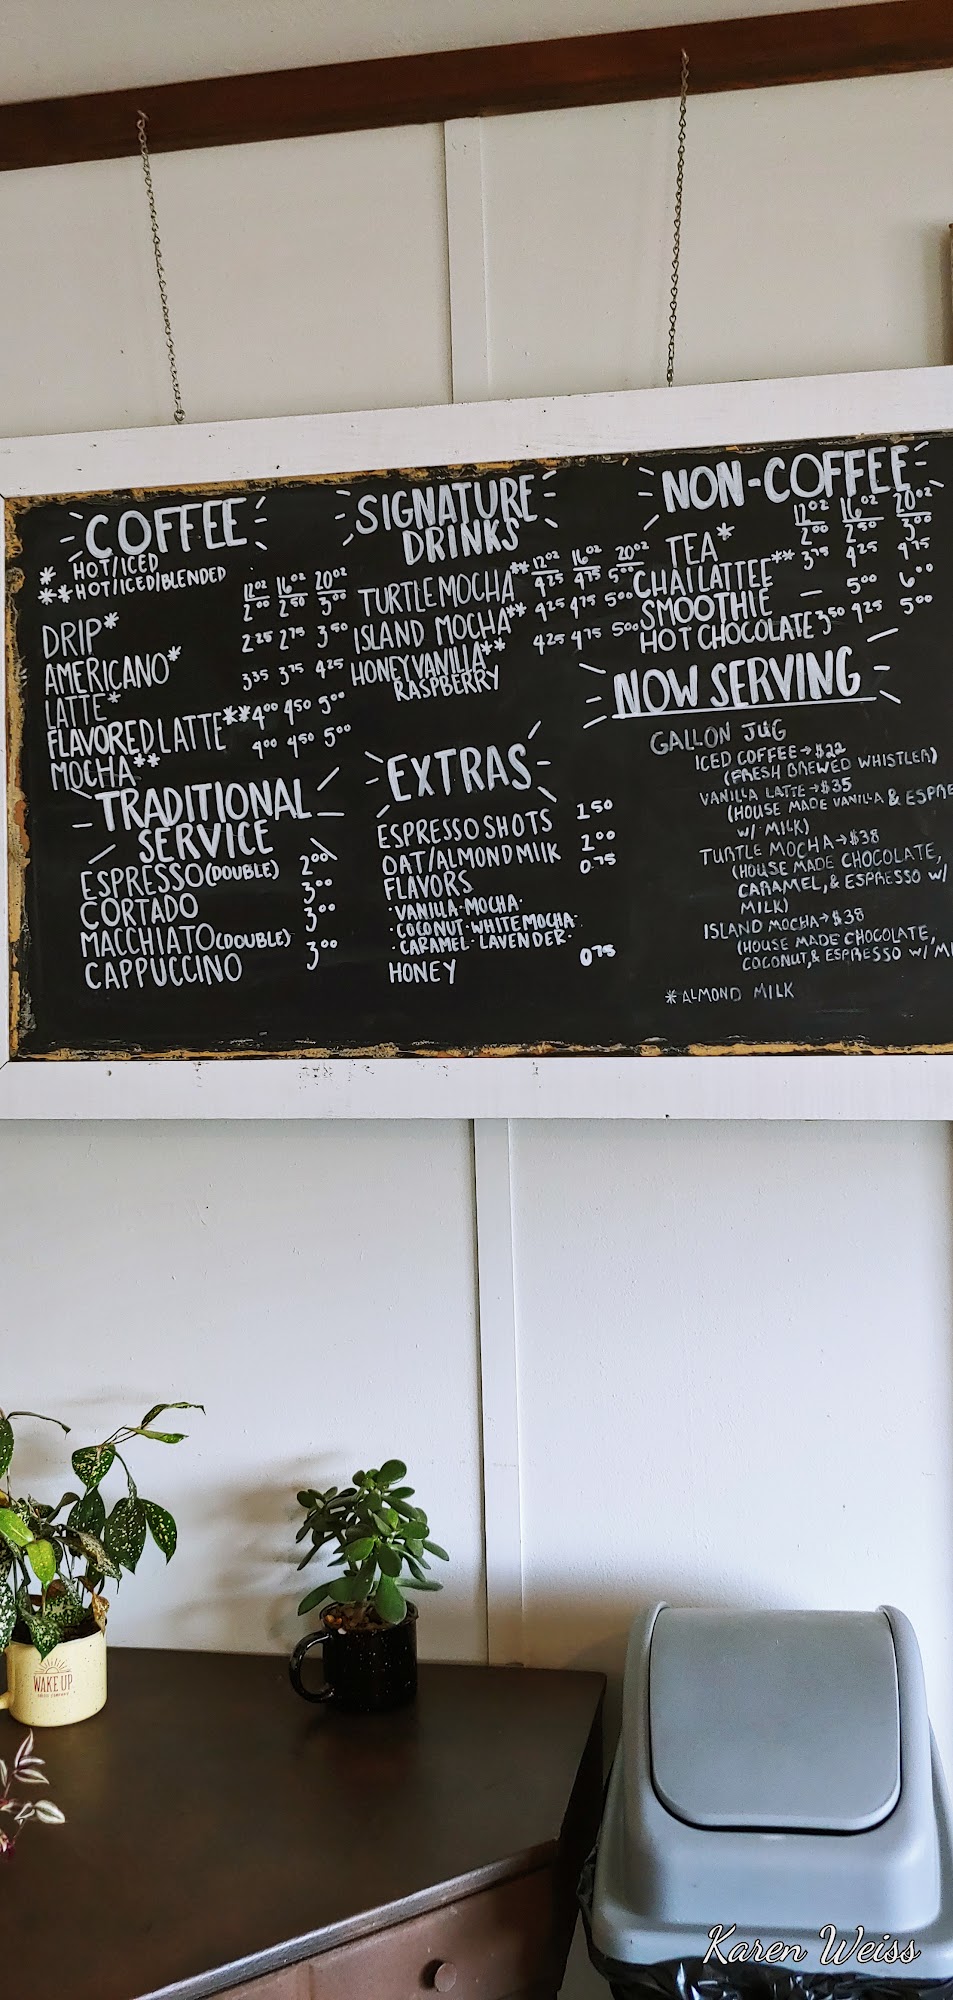 COFFEE
* HOT/ICED
** HOT/ICED/BLENDED
12oz 16oz 20oz
DRIP* 2.00 2.50 3.00
AMERICANO* 2.25 2.75 3.50
LATTE* 3.35 3.75 4.25
FLAVORED LATTE** 4.00 4.50 5.00
MOCHA** 4.00 4.50 5.00
TRADITIONAL
SERVICE
ESPRESSO (DOUBLE) 2.00
CORTADO 3.00
MACCHIATO (DOUBLE) 3.00
CAPPUCCINO 3.00
SIGNATURE
DRINKS
12oz 16oz 20oz
TURTLE MOCHA** 4.25 4.75 5.00
ISLAND MOCHA** 4.25 4.75 5.00
HONEY VANILLA** 4.25 4.75 5.00
RASPBERRY
EXTRAS
ESPRESSO SHOTS 1.50
OAT/ALMOND MILK 2.00
FLAVORS 0.75
· VANILLA · MOCHA ·
· COCONUT · WHITE MOCHA ·
· CARAMEL · LAVENDER ·
HONEY 0.75
NON-COFFEE
12oz 16oz 20oz
TEA* 2.00 2.50 3.00
CHAI LATTEE** 3.75 4.25 4.75
SMOOTHIE — 5.00 6.00
HOT CHOCOLATE 3.50 4.25 5.00
NOW SERVING
GALLON JUG
ICED COFFEE → $22
(FRESH BREWED WHISTLER)
VANILLA LATTE → $35
(HOUSE MADE VANILLA & ESPRE
W/ MILK)
TURTLE MOCHA → $38
(HOUSE MADE CHOCOLATE,
CARAMEL, & ESPRESSO W/
MILK)
ISLAND MOCHA → $38
(HOUSE MADE CHOCOLATE,
COCONUT, & ESPRESSO W/ MI
* ALMOND MILK
WAKE UP
Karen Weiss